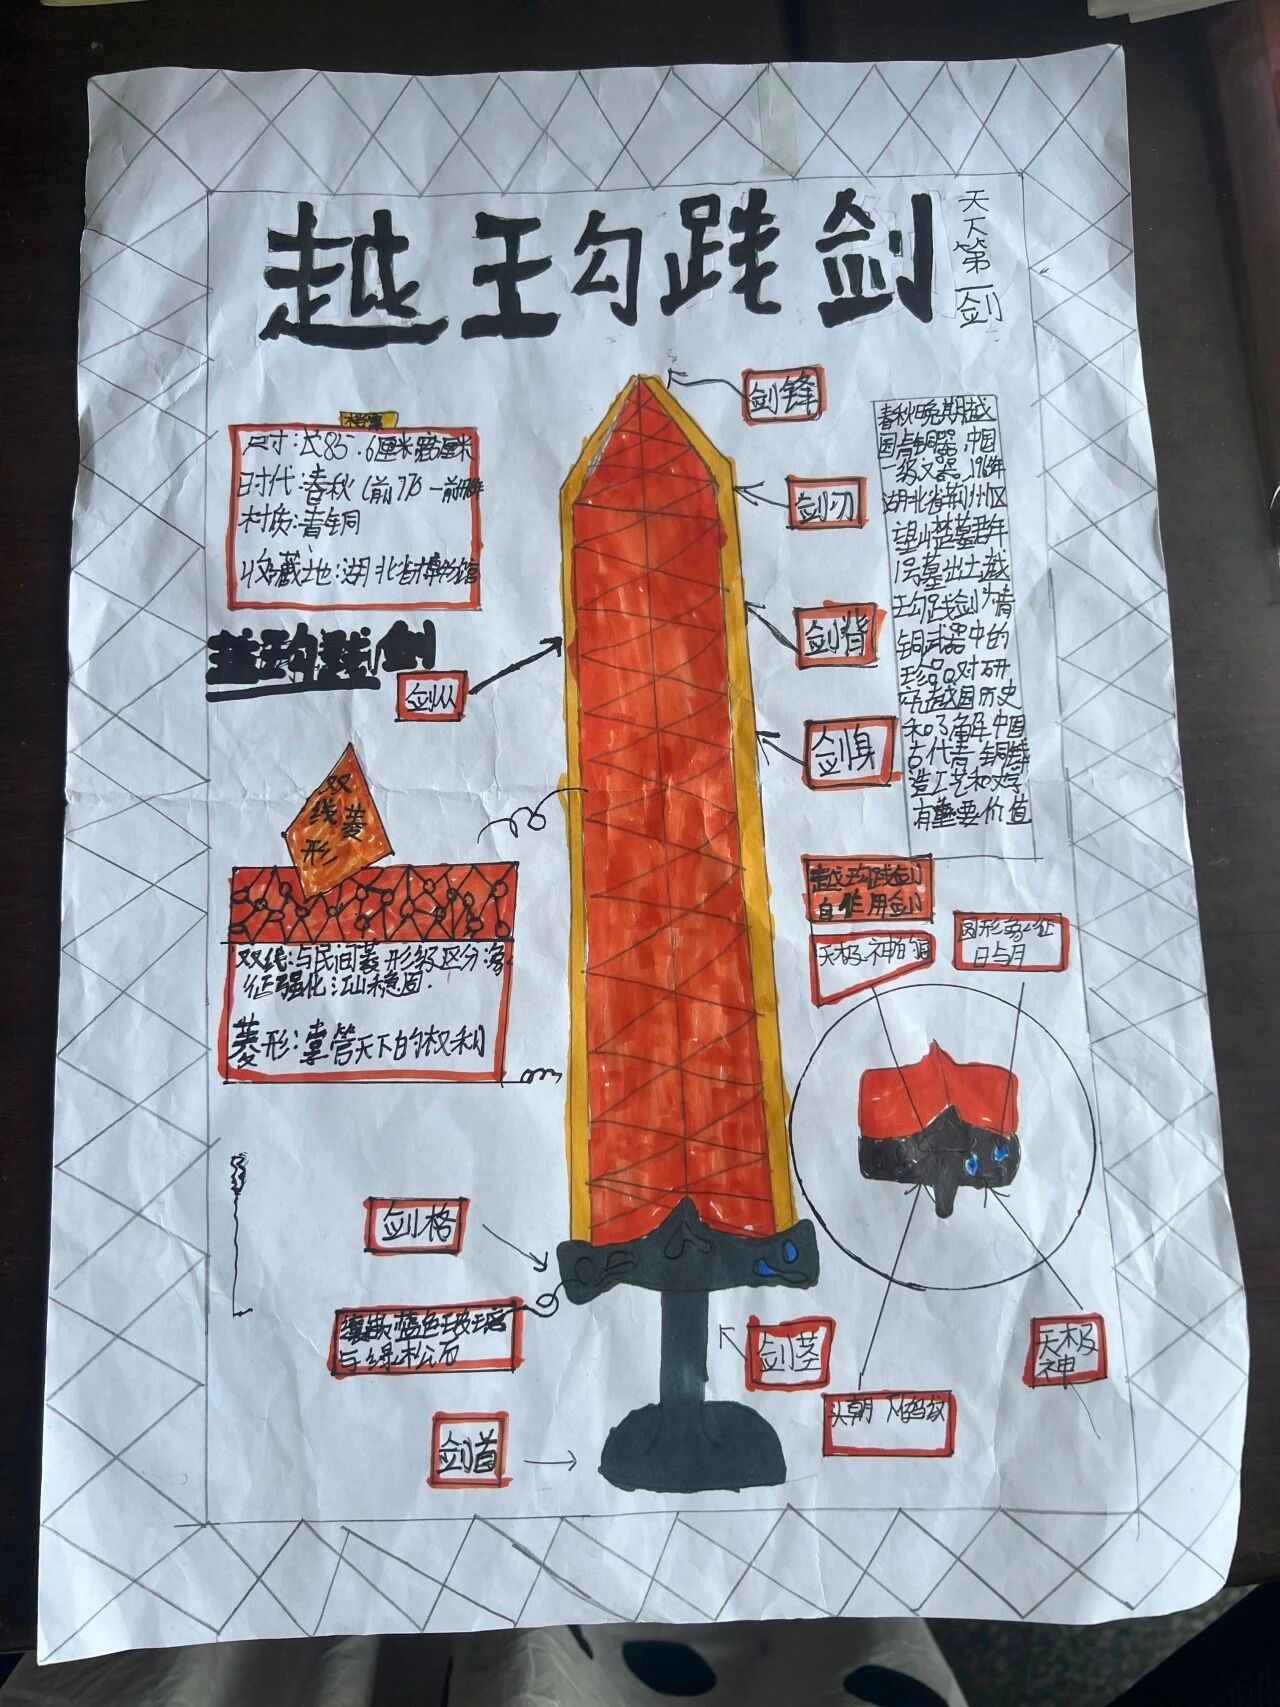 越王勾践剑
天下第一剑
剑锋
尺寸:长85.6厘米宽5厘米
时代:春秋(前770-前
材质:青铜
收藏地:湖北省博物馆
越王勾践剑
剑从
剑刃
剑背
剑身
春秋晚期越
国青铜器,中国
一级文器,1965年
湖北省荆州区
望山楚墓群
1号墓出土越
王勾践剑为青
铜武器中的
珍品。对研
究越国历史
和了解中国
古代青铜铸
造工艺和文字
有重要价值
双线菱形
双线:与民间菱形级区分:象
征强化江山稳固.
菱形:掌管天下的权利
越王勾践剑
自作用剑
天极神的
圆形象征
日与月
剑格
镶嵌蓝色玻璃
与绿松石
剑首
剑茎
头朝下
天极
神